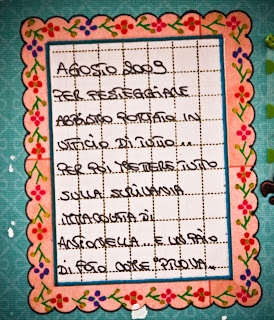 AGOSTO 2009
PER FESTEGGIARE
ABBIAMO PORTATO IN
UFFICIO DI TUTTO..
PER POI METTERE TUTTO
SULLA SCRIVANIA
IMMACOLATA DI
ANTONELLA... E UN PAIO
DI FOTO COME "PROVA..